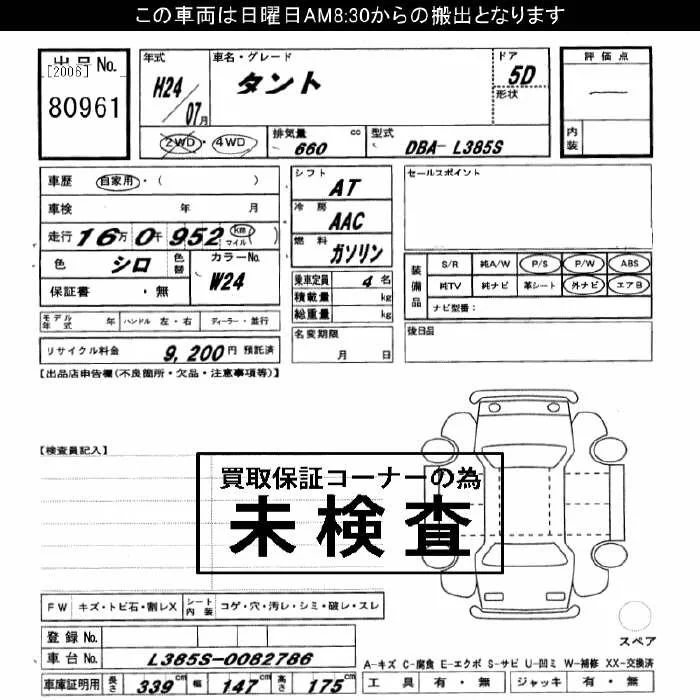 この車両は日曜日AM8:30からの搬出となります
出品No.
[2006]
80961
年式 H24/07月
車名・グレード タント
ドア 5D
形状
評価点 —
内装
2WD ・ 4WD
排気量 660 cc
型式 DBA- L385S
車歴 自家用・( )
車検 年 月
走行 16万 0千 952 km マイル ( )
色 シロ 色替 カラーNo. W24
保証書 ・ 無
モデル年式 年 ハンドル 左・右 ディーラー・並行
リサイクル料金 9,200円 預託済
シフト AT
冷房 AAC
燃料 ガソリン
乗車定員 4 名
積載量 kg
総重量 kg
名変期限 月 日
セールスポイント
装備品
S/R 純A/W P/S P/W ABS
純TV 純ナビ 革シート 外ナビ エアB
ナビ型番:
後日品
【出品店申告欄(不良箇所・欠品・注意事項等)】
【検査員記入】
買取保証コーナーの為
未検査
FW キズ・トビ石・割レX シート内装 コゲ・穴・汚レ・シミ・破レ・スレ
登録No.
車台No. L385S-0082786
車庫証明用 長さ 339cm 幅 147cm 高さ 175cm
スペア
A-キズ C-腐食 E-エクボ S-サビ U-凹ミ W-補修 XX-交換済
工具 有・無 ジャッキ 有・無